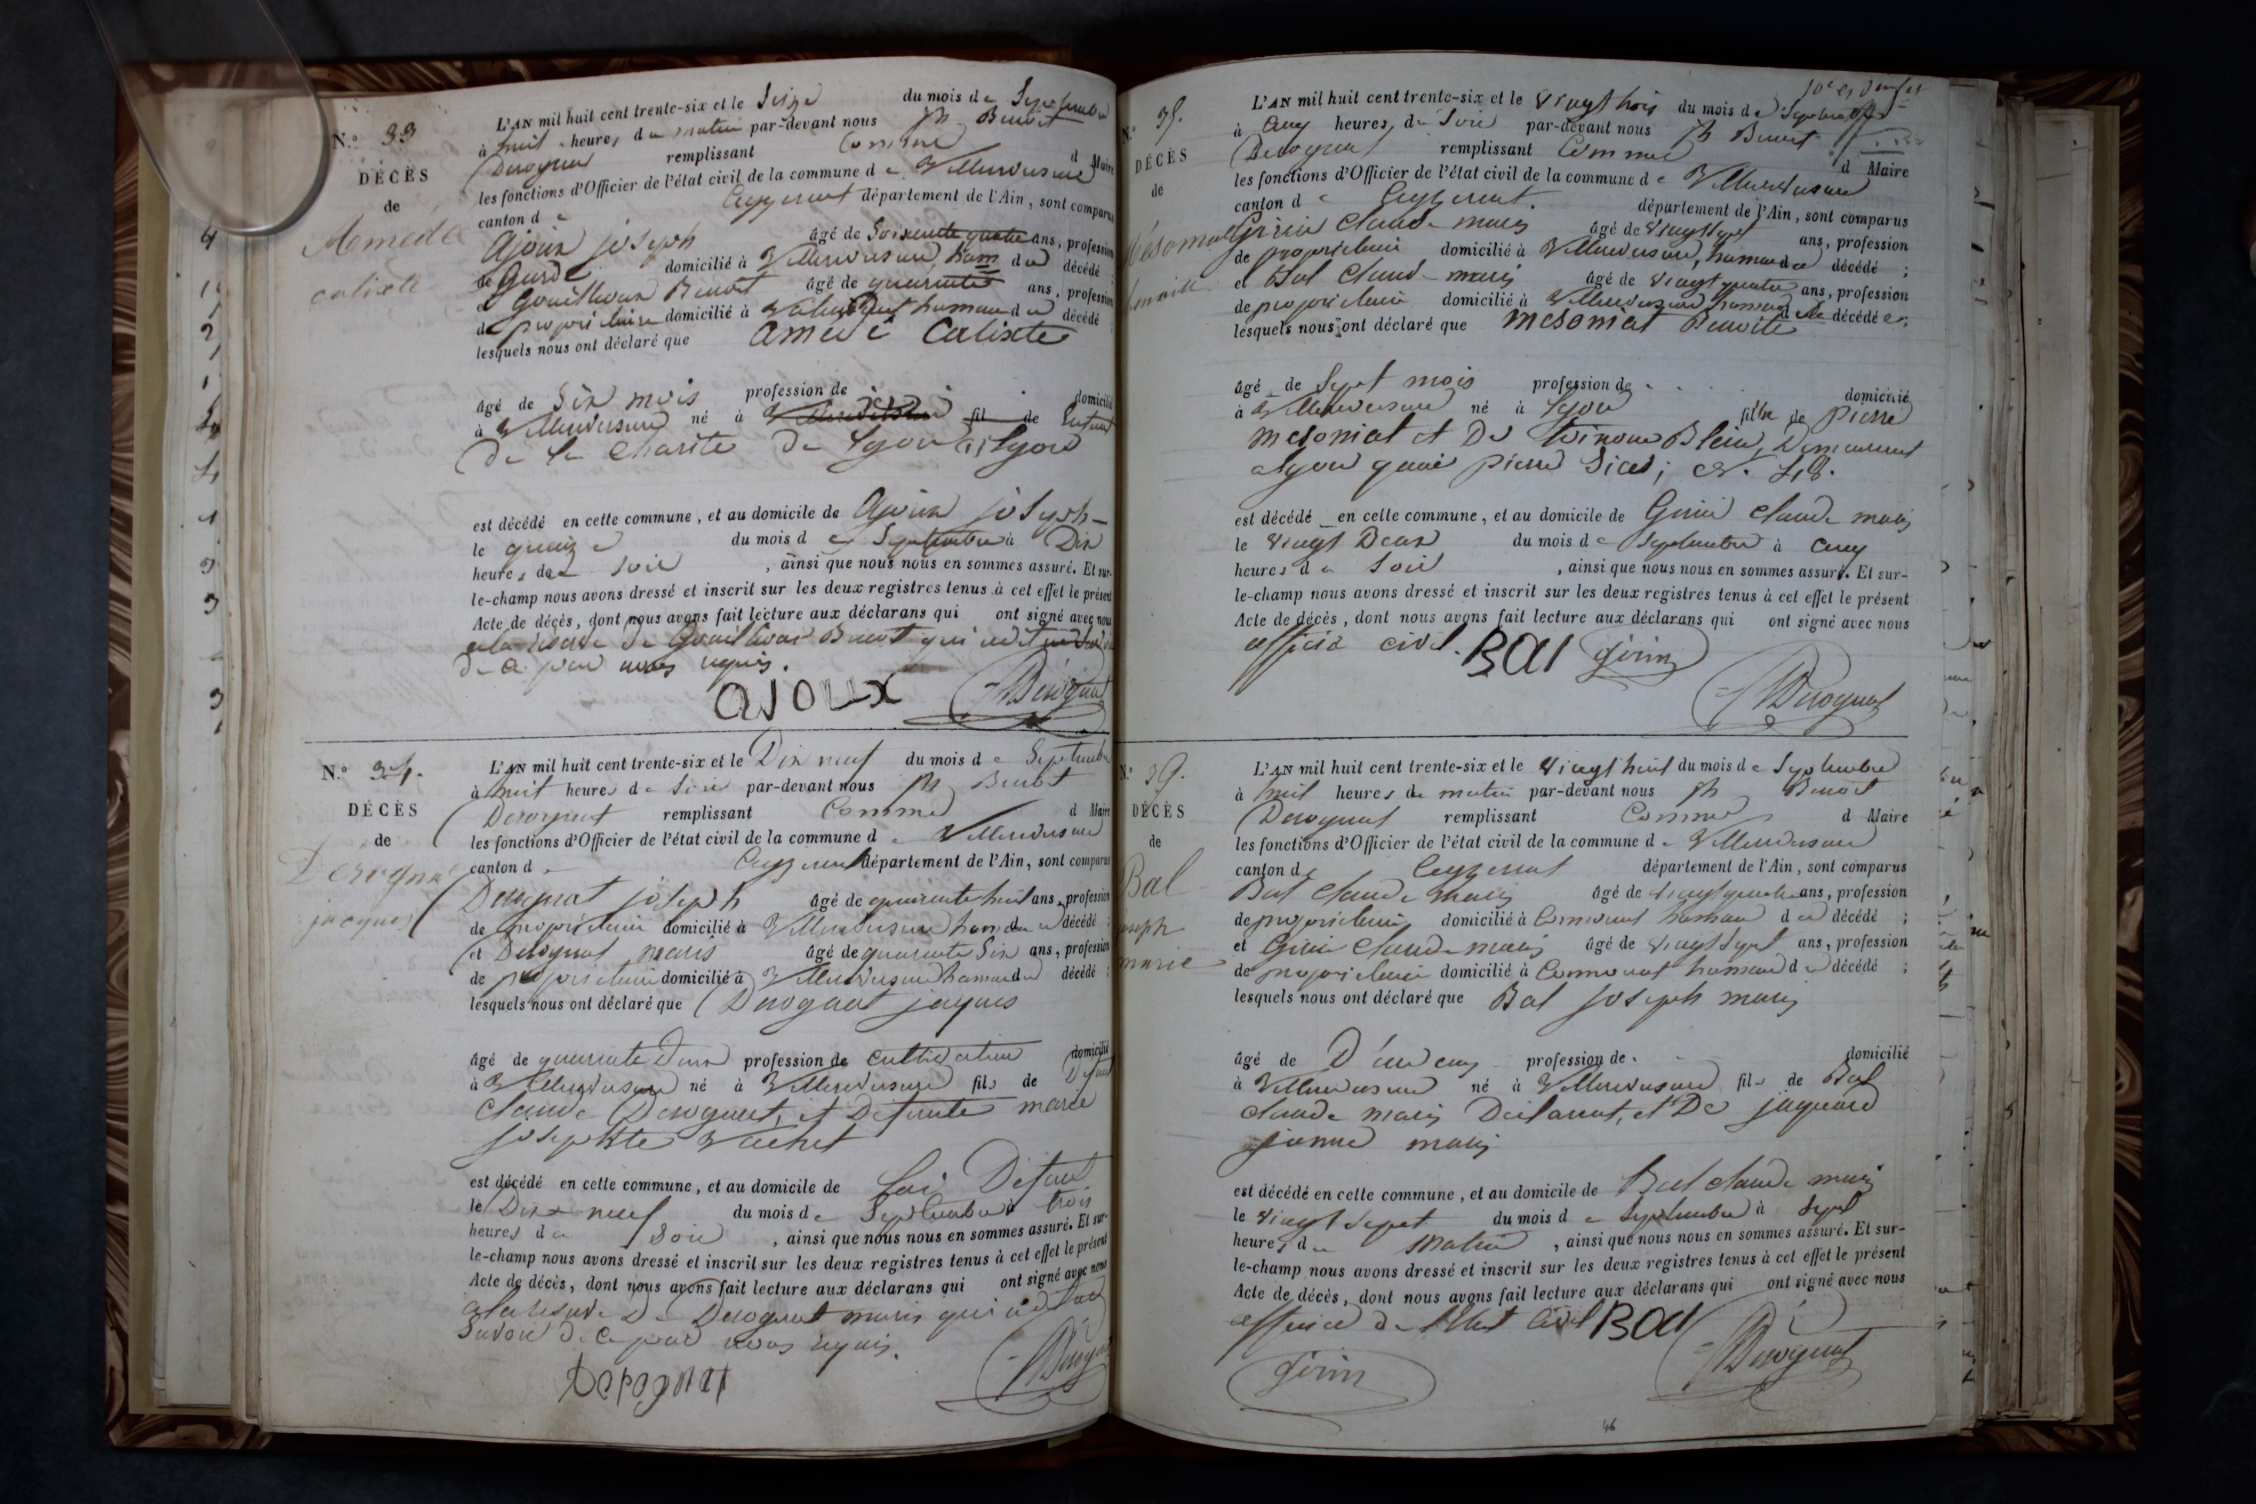 N.º 33
DÉCÈS
de
Amedé
calixte
L'AN mil huit cent trente-six et le Seize du mois de Septembre
à huit heures du matin par-devant nous Benoit
Derognat remplissant Comme d Maire
les fonctions d'Officier de l'état civil de la commune de Villereversure
canton de Ceyzeriat département de l'Ain, sont comparus
ajoux joseph âgé de Soixante quatre ans, profession
de Garde domicilié à Villereversure, ham du décédé ;
et Benoit âgé de quarante ans, profession
de propriétaire domicilié à hameau du décédé ;
lesquels nous ont déclaré que amedé Calixte
âgé de Six mois profession de domicilié
à Villereversure né à fil de Enfant
De la Charité De Lyon à Lyon
est décédé en cette commune, et au domicile de ajoux joseph
le quinze du mois de Septembre à Dix
heures du Soir, ainsi que nous nous en sommes assuré. Et sur-
le-champ nous avons dressé et inscrit sur les deux registres tenus à cet effet le présent
Acte de décès, dont nous avons fait lecture aux déclarans qui ont signé avec nous
Benoit qui
De ce par nous requis.
ajoux Derognat
N.º 34.
DÉCÈS
de
Derognat
jacques
L'AN mil huit cent trente-six et le Dix neuf du mois de Septembre
à huit heures du Soir par-devant nous Benoit
Derognat remplissant Comme d Maire
les fonctions d'Officier de l'état civil de la commune de Villereversure
canton de Ceyzeriat département de l'Ain, sont comparus
Derognat joseph âgé de quarante huit ans, profession
de propriétaire domicilié à Villereversure ham du décédé ;
et Derognat marie âgé de quarante Six ans, profession
de propriétaire domicilié à Villereversure hameau du décédé ;
lesquels nous ont déclaré que Derognat jaques
âgé de quarante Deux profession de Cultivateur domicilié
à Villereversure né à Villereversure fils de Defunt
Claude Derognat, et Defunte marie
josephte Vachet
est décédé en cette commune, et au domicile de Lui Defunt
le Dix neuf du mois de Septembre à trois
heures du Soir, ainsi que nous nous en sommes assuré. Et sur-
le-champ nous avons dressé et inscrit sur les deux registres tenus à cet effet le présent
Acte de décès, dont nous avons fait lecture aux déclarans qui ont signé avec nous
Derognat marie qui
Savoir De ce par nous requis.
Derognat Derognat
N.º 35.
DÉCÈS
de
L'AN mil huit cent trente-six et le Vingt trois du mois de Septembre
à Cinq heures, du Soir par-devant nous Benoit
Derognat remplissant Comme d Maire
les fonctions d'Officier de l'état civil de la commune de Villereversure
canton de Ceyzeriat. département de l'Ain, sont comparus
Girin Claude marie âgé de Vingt Sept ans, profession
de propriétaire domicilié à Villereversure, hameau du décédé ;
et Bal Claude marie âgé de Vingt quatre ans, profession
de propriétaire domicilié à Villereversure hameau de la décédée ;
lesquels nous ont déclaré que mesoniat Benoite
âgé de Sept mois profession de domicilié
à Villereversure né à Lyon fille de Pierre
mesoniat et De Blein, Demeurant
a Lyon quai pierre Sice,
est décédé en cette commune, et au domicile de Girin Claude marie
le Vingt Deux du mois de Septembre à Cinq
heures du Soir, ainsi que nous nous en sommes assuré. Et sur-
le-champ nous avons dressé et inscrit sur les deux registres tenus à cet effet le présent
Acte de décès, dont nous avons fait lecture aux déclarans qui ont signé avec nous
officier civil. BAl girin
Derognat
DÉCÈS
de
Bal
joseph
marie
L'AN mil huit cent trente-six et le Vingt huit du mois de Septembre
à huit heures du matin par-devant nous Benoit
Derognat remplissant Comme d Maire
les fonctions d'Officier de l'état civil de la commune de Villereversure
canton de Ceyzeriat département de l'Ain, sont comparus
Bal Claude marie âgé de Vingt quatre ans, profession
de propriétaire domicilié à hameau du décédé ;
et Girin Claude marie âgé de Vingt Sept ans, profession
de propriétaire domicilié à hameau du décédé ;
lesquels nous ont déclaré que Bal joseph marie
âgé de D'un an profession de domicilié
à Villereversure né à Villereversure fils de Bal
Claude marie Declarant, et De jaquard
janne marie
est décédé en cette commune, et au domicile de Bal Claude marie
le Vingt Sept du mois de Septembre à Sept
heures du matin, ainsi que nous nous en sommes assuré. Et sur-
le-champ nous avons dressé et inscrit sur les deux registres tenus à cet effet le présent
Acte de décès, dont nous avons fait lecture aux déclarans qui ont signé avec nous
officier de l'Etat Civil BAl
girin Derognat
46